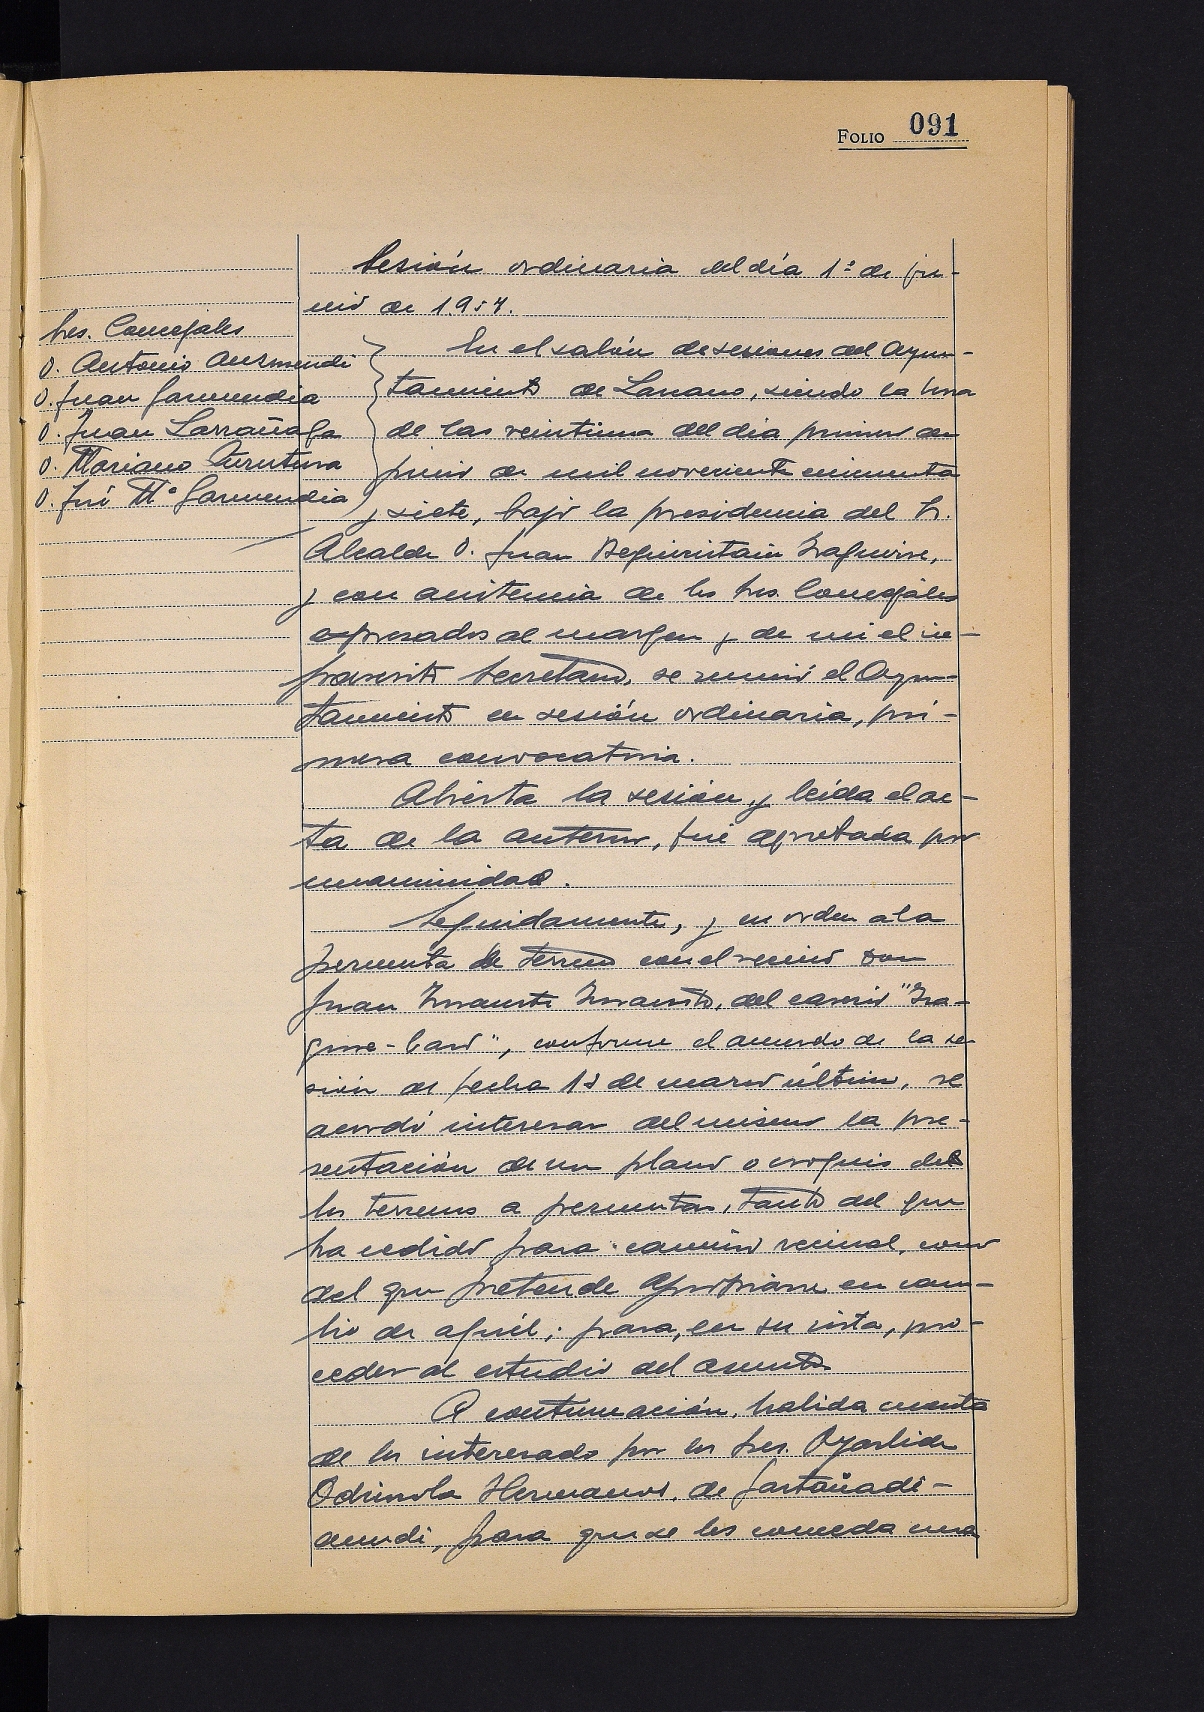 FOLIO 091
Sesión ordinaria del día 1º de ju-
nio de 1957.
Sres. Concejales
D. Antonio Auzmendi
D. Juan Garmendia
D. Juan Larrañaga
D. Mariano
D. José Mª Garmendia
En el salón de sesiones del Ayun-
tamiento de Larraul, siendo la hora
de las veintiuna del día primero de
junio de mil novecientos cincuenta
y siete, bajo la presidencia del Sr.
Alcalde D. Juan Beguiristain Izaguirre,
y con asistencia de los Sres. Concejales
expresados al margen y de mi el in-
frascrito Secretario, se reunió el Ayun-
tamiento en sesión ordinaria, pri-
mera convocatoria.
Abierta la sesión, y leída el ac-
ta de la anterior, fué aprobada por
unanimidad.
Seguidamente, y en orden a la
permuta de terreno con el vecino don
Juan, del caserío "Iza-
guirre-", conforme el acuerdo de la se-
sión de fecha de marzo último, se
acordó interesar del mismo la pre-
sentación de un plano o croquis de
los terrenos a permutar, tanto del que
ha cedido para camino vecinal, como
del que pretende apropiarse en cam-
bio de aquél; para, en su vista, pro-
ceder al estudio del asunto
A continuación, habida cuenta
de lo interesado por los Sres. Oyarbide
Odriozola Hermanos, de
para que se les conceda una